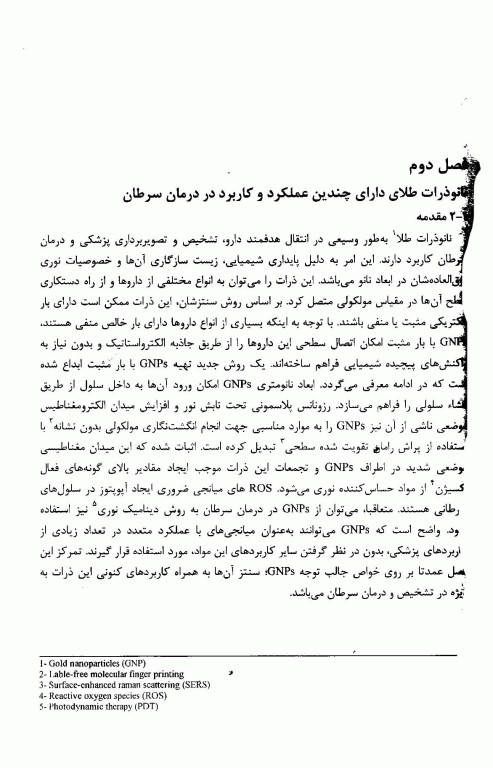 فصل دوم
نانوذرات طلای دارای چندین عملکرد و کاربرد در درمان سرطان
۲- مقدمه
نانوذرات طلا۱ به‌طور وسیعی در انتقال هدفمند دارو، تشخیص و تصویربرداری پزشکی و درمان
سرطان کاربرد دارند. این امر به دلیل پایداری شیمیایی، زیست سازگاری آن‌ها و خصوصیات نوری
فوق‌العاده‌شان در ابعاد نانو می‌باشد. این ذرات را می‌توان به انواع مختلفی از داروها و از راه دستکاری
سطح آن‌ها در مقیاس مولکولی متصل کرد. بر اساس روش سنتزشان، این ذرات ممکن است دارای بار
الکتریکی مثبت یا منفی باشند. با توجه به اینکه بسیاری از انواع داروها دارای بار خالص منفی هستند،
GNP با بار مثبت امکان اتصال سطحی این داروها را از طریق جاذبه الکترواستاتیک و بدون نیاز به
واکنش‌های پیچیده شیمیایی فراهم ساخته‌اند. یک روش جدید تهیه GNPs با بار مثبت ابداع شده
است که در ادامه معرفی می‌گردد. ابعاد نانومتری GNPs امکان ورود آن‌ها به داخل سلول از طریق
غشاء سلولی را فراهم می‌سازد. رزونانس پلاسمونی تحت تابش نور و افزایش میدان الکترومغناطیس
موضعی ناشی از آن نیز GNPs را به موارد مناسبی جهت انجام انگشت‌نگاری مولکولی بدون نشانه۲ با
استفاده از پراش رامان تقویت شده سطحی۳ تبدیل کرده است. اثبات شده که این میدان مغناطیسی
موضعی شدید در اطراف GNPs و تجمعات این ذرات موجب ایجاد مقادیر بالای گونه‌های فعال
اکسیژن۴ از مواد حساس‌کننده نوری می‌شود. ROS های میانجی ضروری ایجاد آپوپتوز در سلول‌های
سرطانی هستند. متعاقبا، می‌توان از GNPs در درمان سرطان به روش دینامیک نوری۵ نیز استفاده
نمود. واضح است که GNPs می‌توانند به‌عنوان میانجی‌های با عملکرد متعدد در تعداد زیادی از
کاربردهای پزشکی، بدون در نظر گرفتن سایر کاربردهای این مواد، مورد استفاده قرار گیرند. تمرکز این
فصل عمدتا بر روی خواص جالب توجه GNPs؛ سنتز آن‌ها به همراه کاربردهای کنونی این ذرات به
ویژه در تشخیص و درمان سرطان می‌باشد.
1- Gold nanoparticles (GNP)
2- Lable-free molecular finger printing
3- Surface-enhanced raman scattering (SERS)
4- Reactive oxygen species (ROS)
5- Photodynamic therapy (PDT)